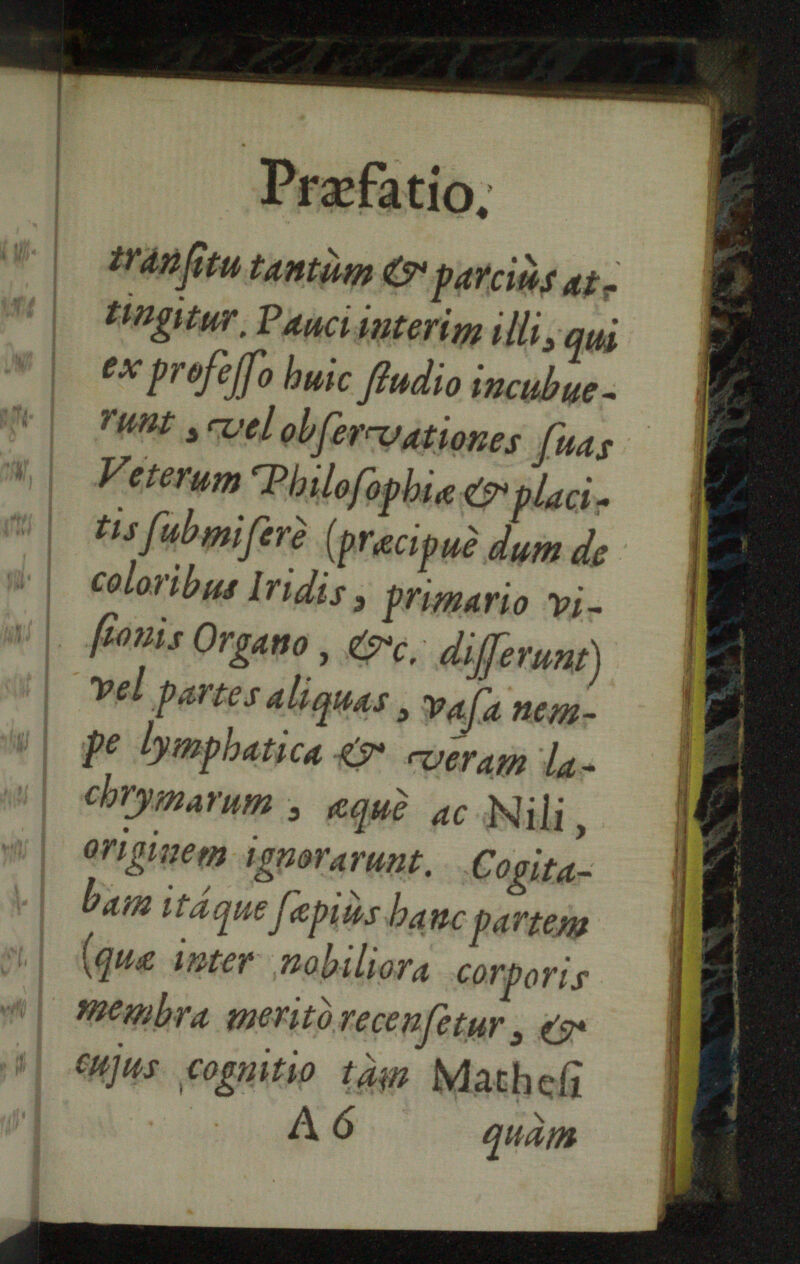 Præfatio.
tranſitu tantùm & parciùs at-
tingitur. Pauci interim illi, qui
ex profeſſo huic ſtudio incubue-
runt, vel obſervationes ſuas
Veterum Philoſophiæ & placi-
tis ſubmiſerè (præcipuè dum de
coloribus Iridis, primario vi-
ſionis Organo, &c. diſſerunt)
vel partes aliquas, vaſa nem-
pe lymphatica & veram la-
chrymarum, æquè ac Nili,
originem ignorarunt. Cogita-
bam itáque ſæpiùs hanc partem
(quæ inter nobiliora corporis
membra meritò recenſetur, &
cujus cognitio tàm Matheſi
A 6
quàm